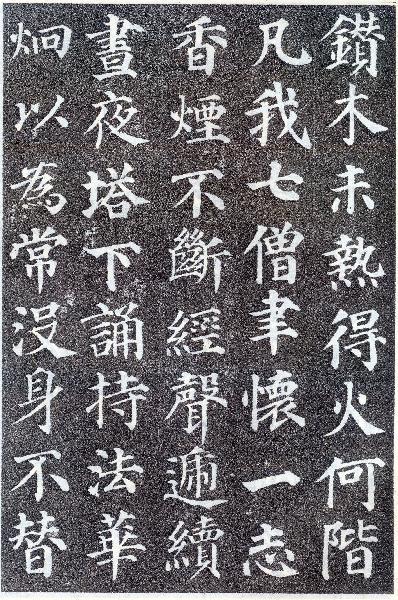 鑽木未熱得火何階
凡我七僧聿懷一志
香煙不斷經聲遞續
晝夜塔下誦持法華
炯以為常沒身不替